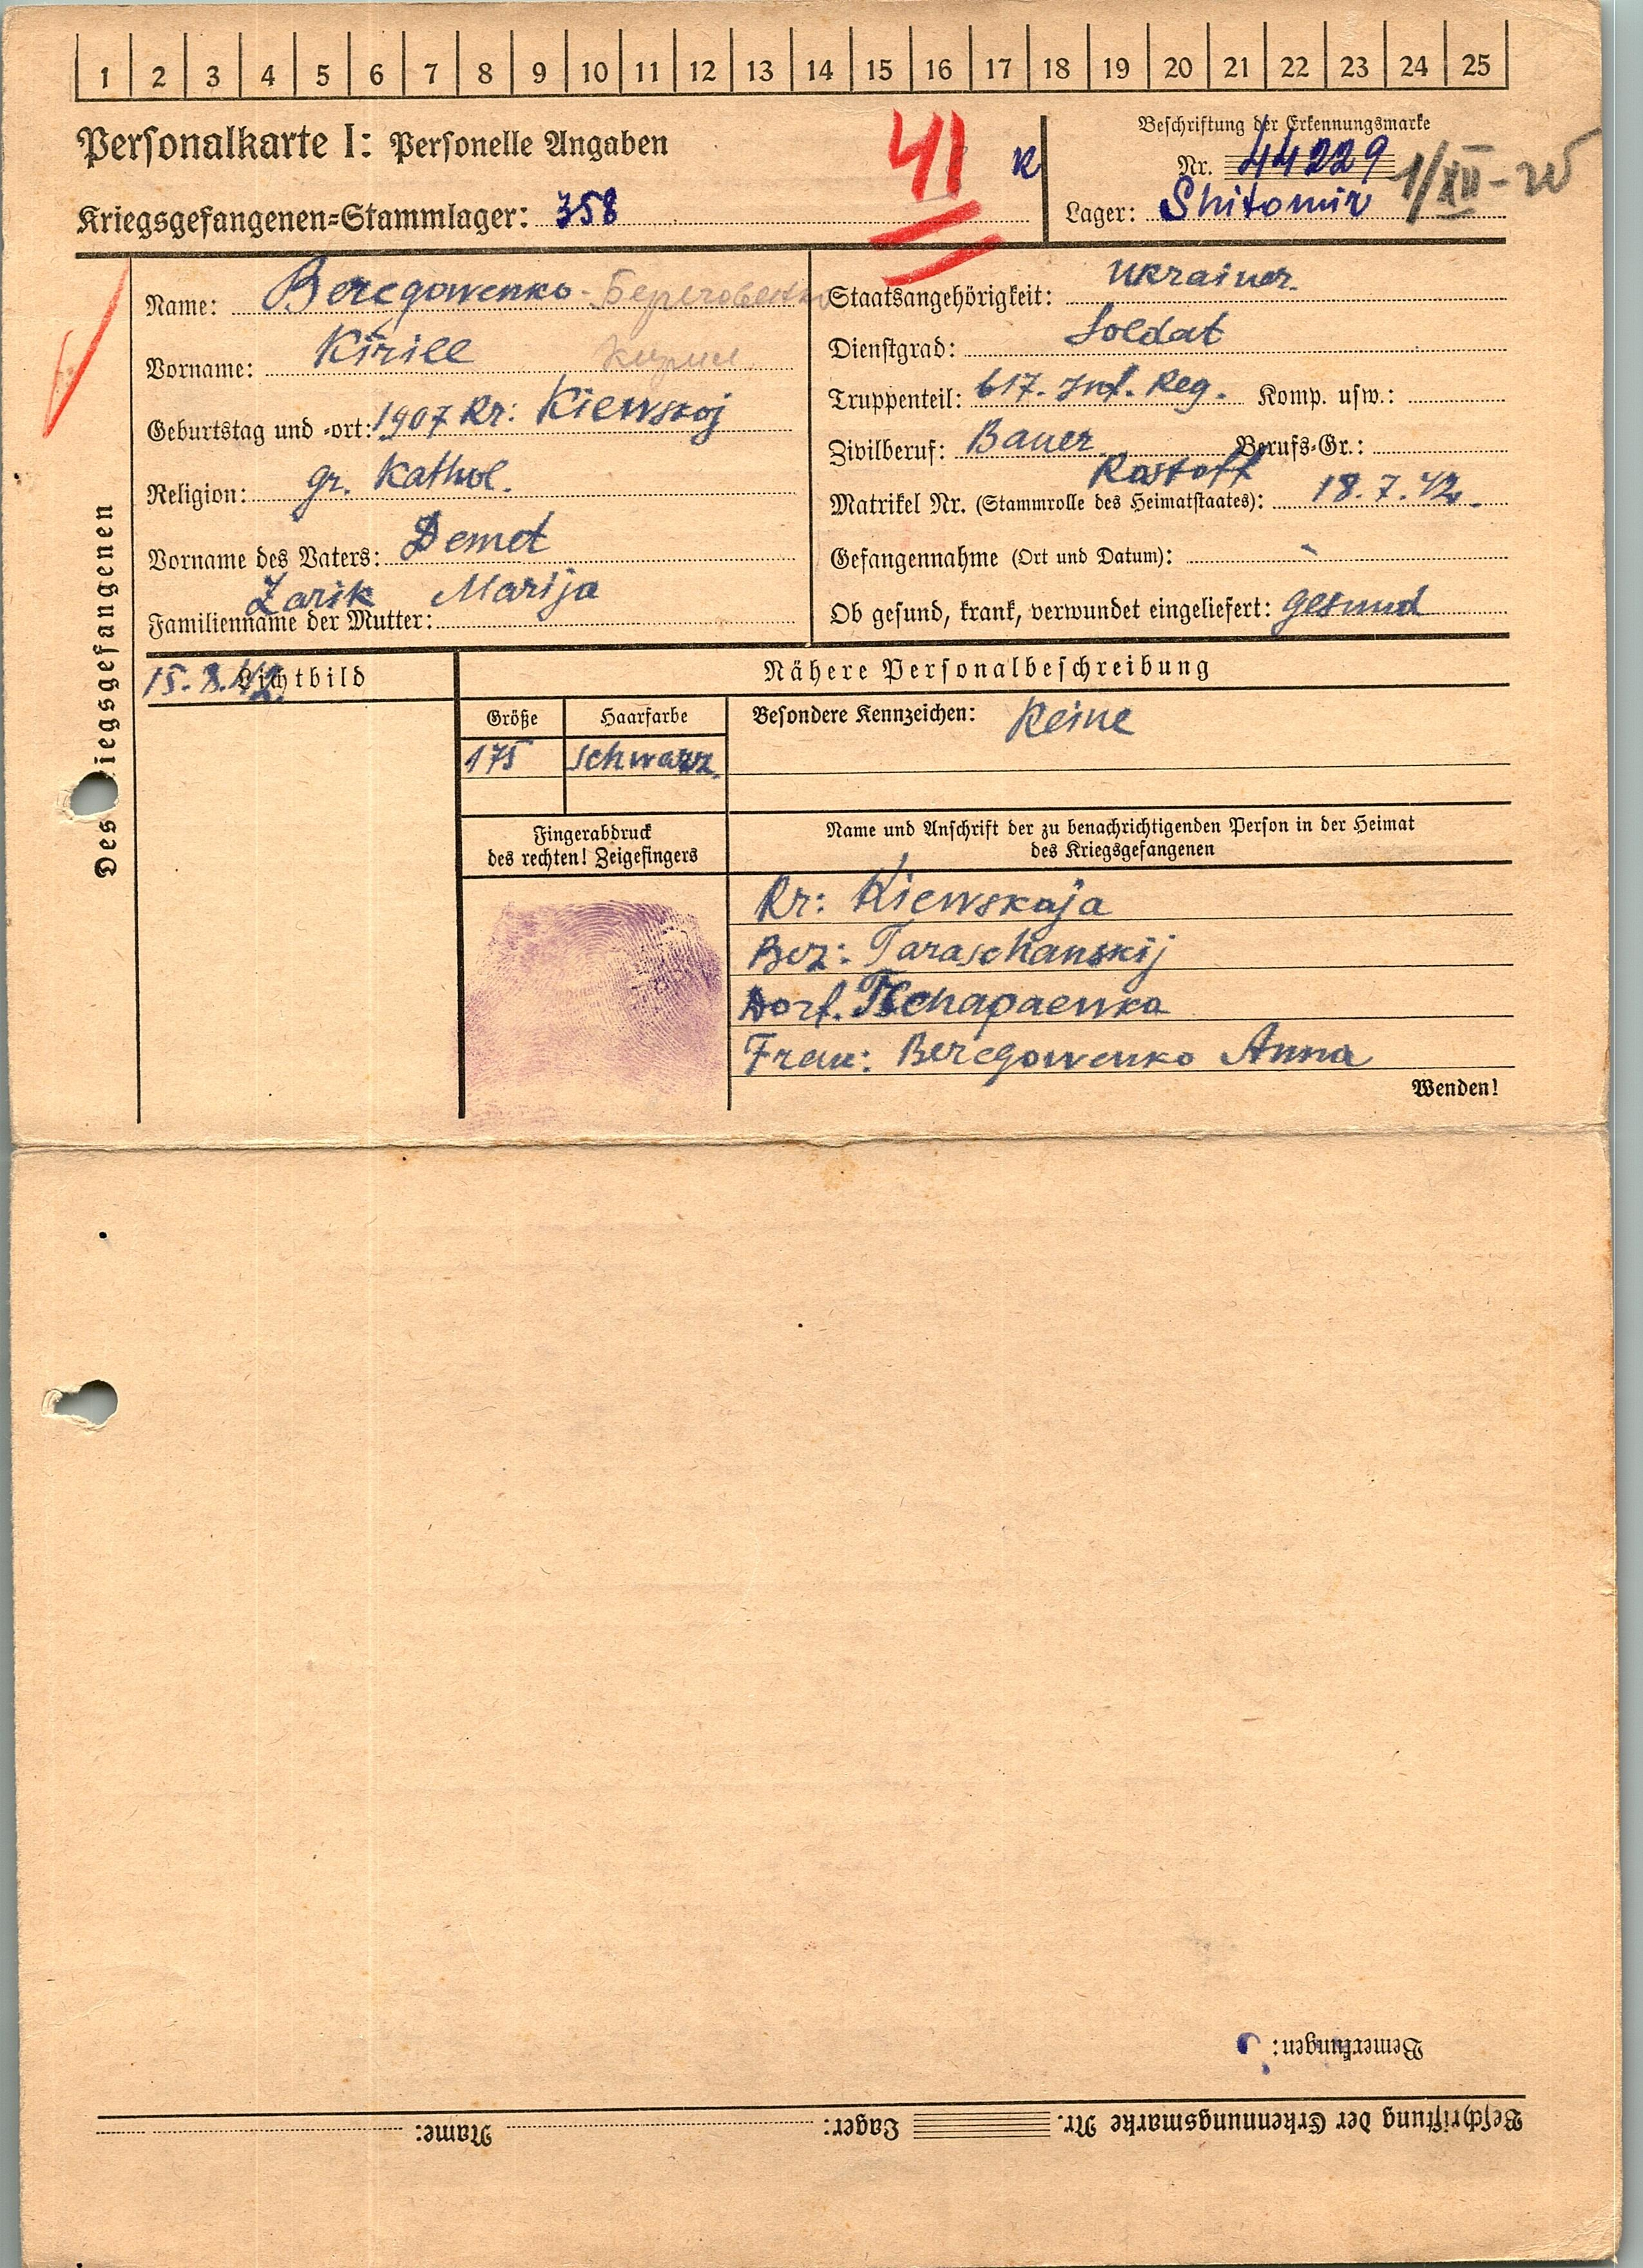 1 2 3 4 5 6 7 8 9 10 11 12 13 14 15 16 17 18 19 20 21 22 23 24 25
Personalkarte I: Personelle Angaben
41 R
Beschriftung der Erkennungsmarke
Nr. 44229 1/XII
Kriegsgefangenen-Stammlager: 358
Lager: Shitomir
Des Kriegsgefangenen
Name: Beregowenko - Береговенко
Vorname: Kirill Кирил
Geburtstag und -ort: 1907 Kr: Kiewskoj
Religion: gr. Kathol.
Vorname des Vaters: Demet
Zarik Marija
Familienname der Mutter:
Staatsangehörigkeit: Ukrainer.
Dienstgrad: Soldat
Truppenteil: 617. Inf. Reg. Komp. usw.:
Zivilberuf: Bauer Berufs-Gr.:
Rostoff
Matrikel Nr. (Stammrolle des Heimatstaates): 18.7.42.
Gefangennahme (Ort und Datum): -
Ob gesund, krank, verwundet eingeliefert: gesund
15.8.42. Lichtbild
Nähere Personalbeschreibung
Größe Haarfarbe
175 schwarz.
Besondere Kennzeichen: Keine
Fingerabdruck
des rechten! Zeigefingers
Name und Anschrift der zu benachrichtigenden Person in der Heimat
des Kriegsgefangenen
Kr: Kiewskaja
Bez: Taraschanskij
Dorf. Tschapaewka
Frau: Beregowenko Anna
Wenden!
Bemerkungen:
Beschriftung der Erkennungsmarke Nr. Lager: Name: